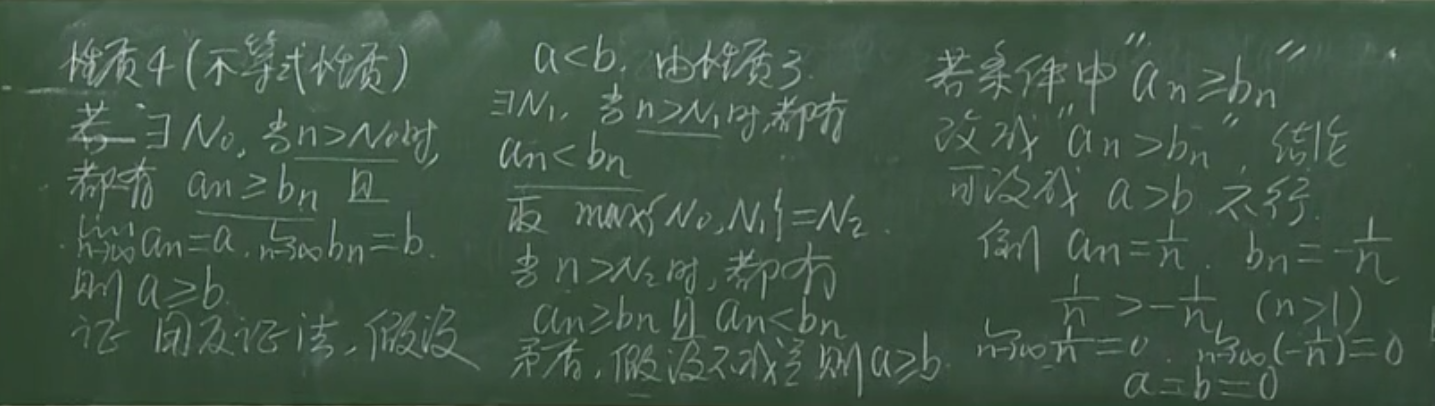 性质4(不等式性质)
若 ∃N₀, 当n>N₀时,
都有 aₙ≥bₙ 且
lim n→∞ aₙ=a, lim n→∞ bₙ=b.
则 a≥b.
证 用反证法, 假设
a<b, 由性质3.
∃N₁, 当n>N₁时,都有
aₙ<bₙ
取 max{N₀,N₁}=N₂.
当n>N₂时, 都有
aₙ≥bₙ且 aₙ<bₙ
矛盾, 假设不成立 则a≥b.
若条件中"aₙ≥bₙ"
改成"aₙ>bₙ", 结论
可改成 a>b 不行.
例 aₙ=1/n. bₙ=-1/n
1/n>-1/n (n>1)
lim n→∞ 1/n=0. lim n→∞ (-1/n)=0
a=b=0